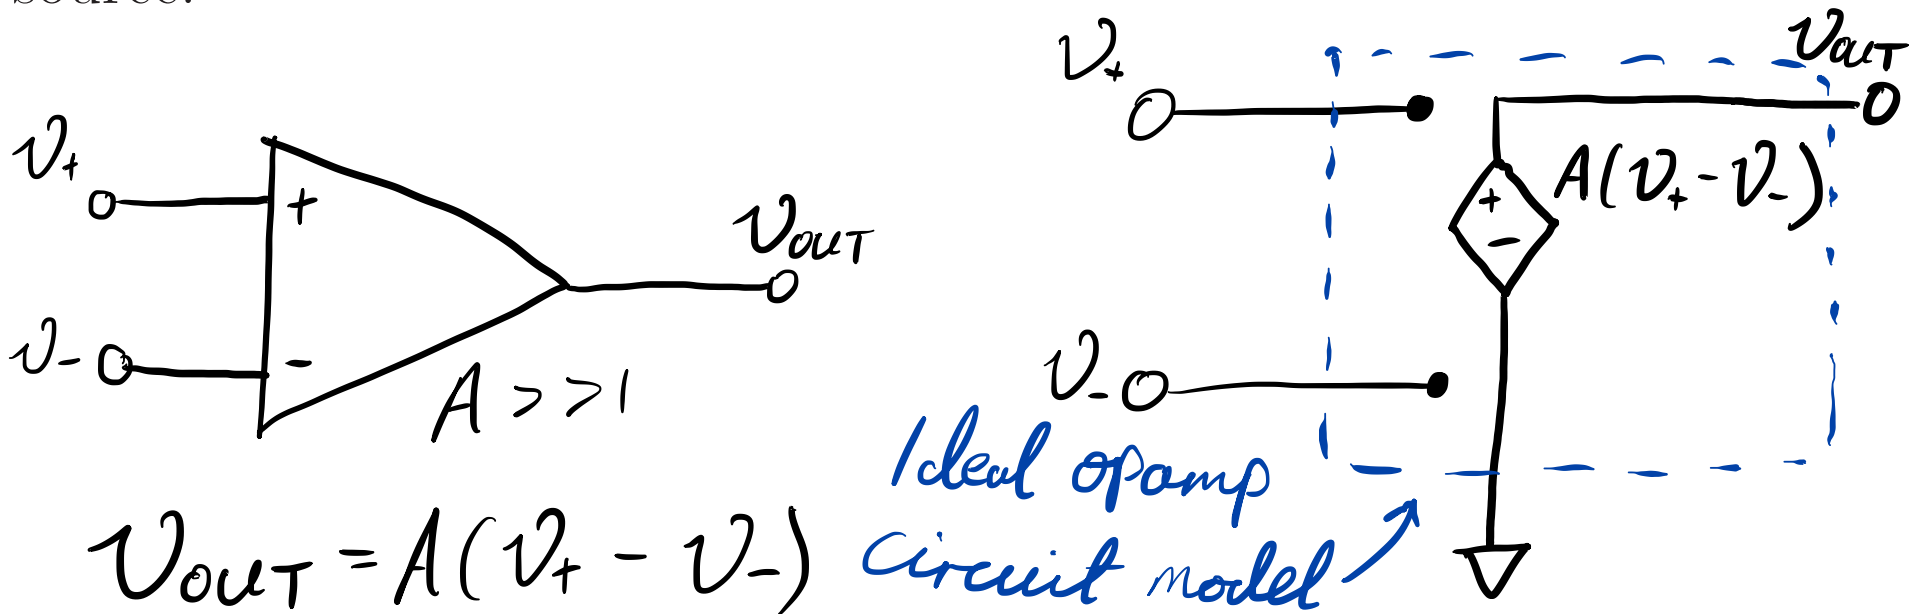 source.
v+
v-
+
-
vOUT
A >> 1
vOUT = A(v+ - v-)
v+
v-
vOUT
+
-
A(v+ - v-)
Ideal opamp
circuit model